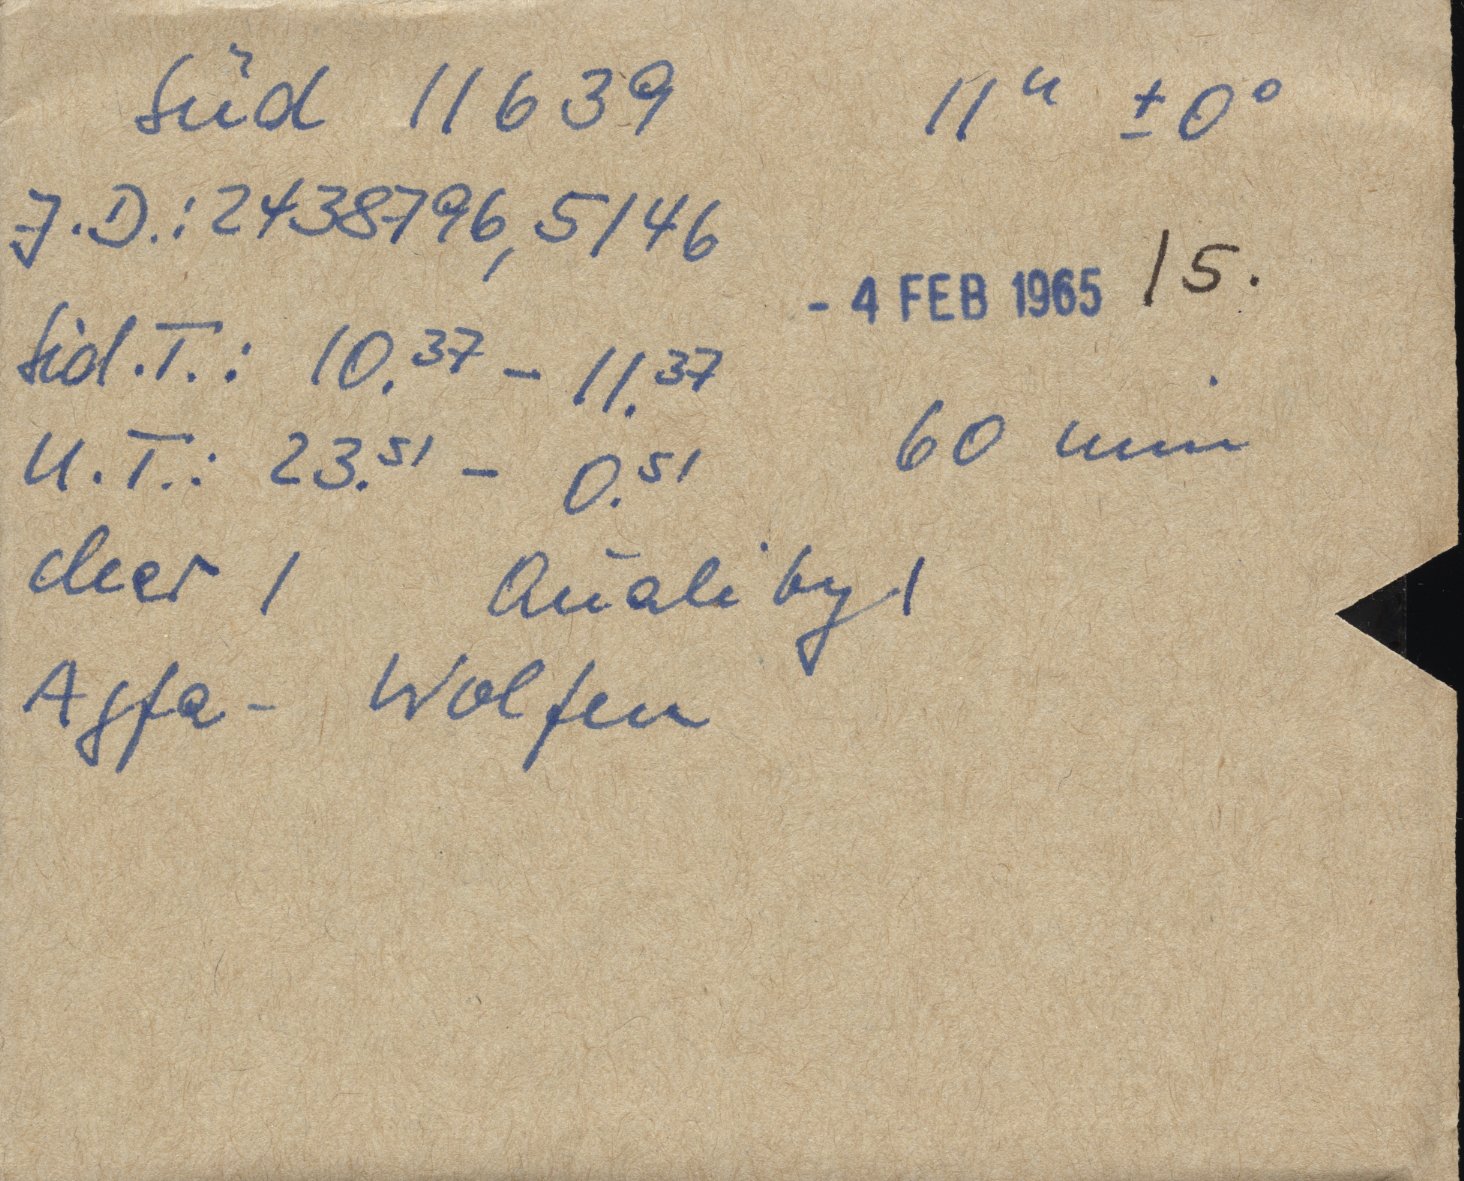 Süd 11639 11ʰ ±0°
J.D.: 2438796,5146
- 4 FEB 1965 /5.
Sid.T.: 10.³⁷ - 11.³⁷
U.T.: 23.⁵¹ - 0.⁵¹ 60 min
clear 1 Quality 1
Agfa - Wolfen